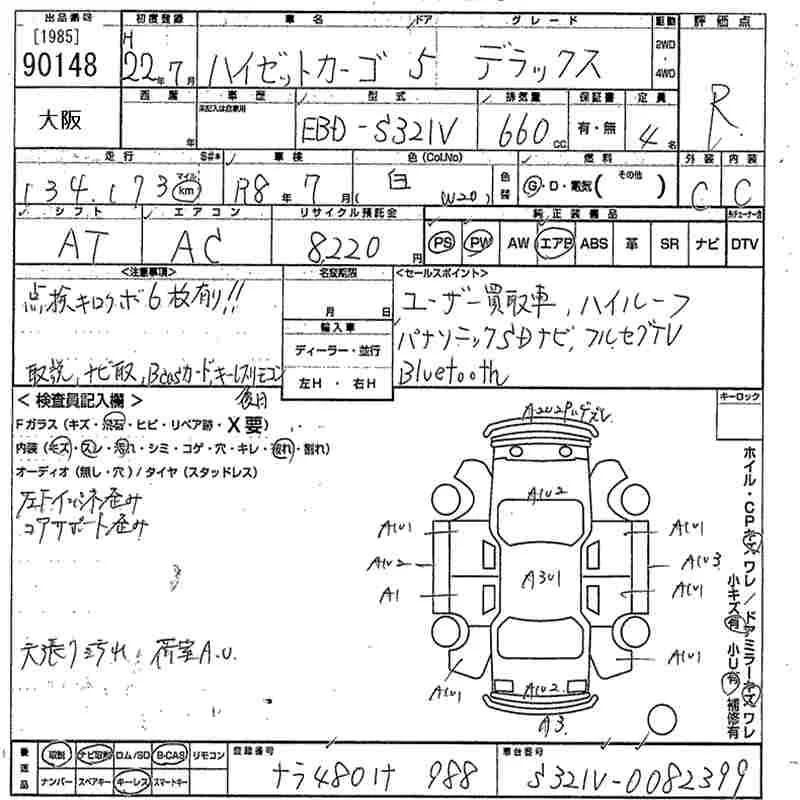 出品番号 初度登録 車名 ドア グレード 駆動 評価点
[1985] H 2WD
90148 22年7月 ハイゼットカーゴ 5 デラックス ・ R
4WD
大阪 西暦 車歴 型式 排気量 保証書 定員
未記入は自家用
年 EBD-S321V 660cc 有・無 4名
走行 S#* 車検 色(Col.No) 燃料 外装 内装
134,173 マイル km R8年7月 白 (W20) 色替 G・D・電気( その他 ) C C
シフト エアコン リサイクル預託金 純正装備品
AT AC 8,220円 PS PW AW エアB ABS 革 SR ナビ DTV
<注意事項> 名変期限 <セールスポイント>
点検キロクボ6枚有り!! 月 日 ユーザー買取車, ハイルーフ
輸入車 パナソニックSDナビ, フルセグTV
ディーラー・並行
取説, ナビ取, Bcasカード, キーレスリモコン 左H・右H Bluetooth
後日
<検査員記入欄> キーロック
Fガラス(キズ・飛石・ヒビ・リペア跡・X要)
内装(コゲ・スレ・汚れ・シミ・コゲ・穴・キレ・破れ・割れ)
オーディオ(無し・穴)/タイヤ(スタッドレス)
左Fインシネ歪み
コアサポート歪み
天張り汚れ 荷室A.U.
A2U2Pハゲズレ
A1U2
A1U1 A1U1
A1U2 A3U1 A1U3
A1 A1U1
A1U1 A1U2 A1U1
A3
ホイル・CPキズワレ/ドアミラーキズワレ
小キズ有 小U有 補修有
後送品 取説 ナビ取説 ロム/SD B-CAS リモコン 登録番号 車台番号
ナンバー スペアキー キーレス スマートキー ナラ480け 988 S321V-0082399